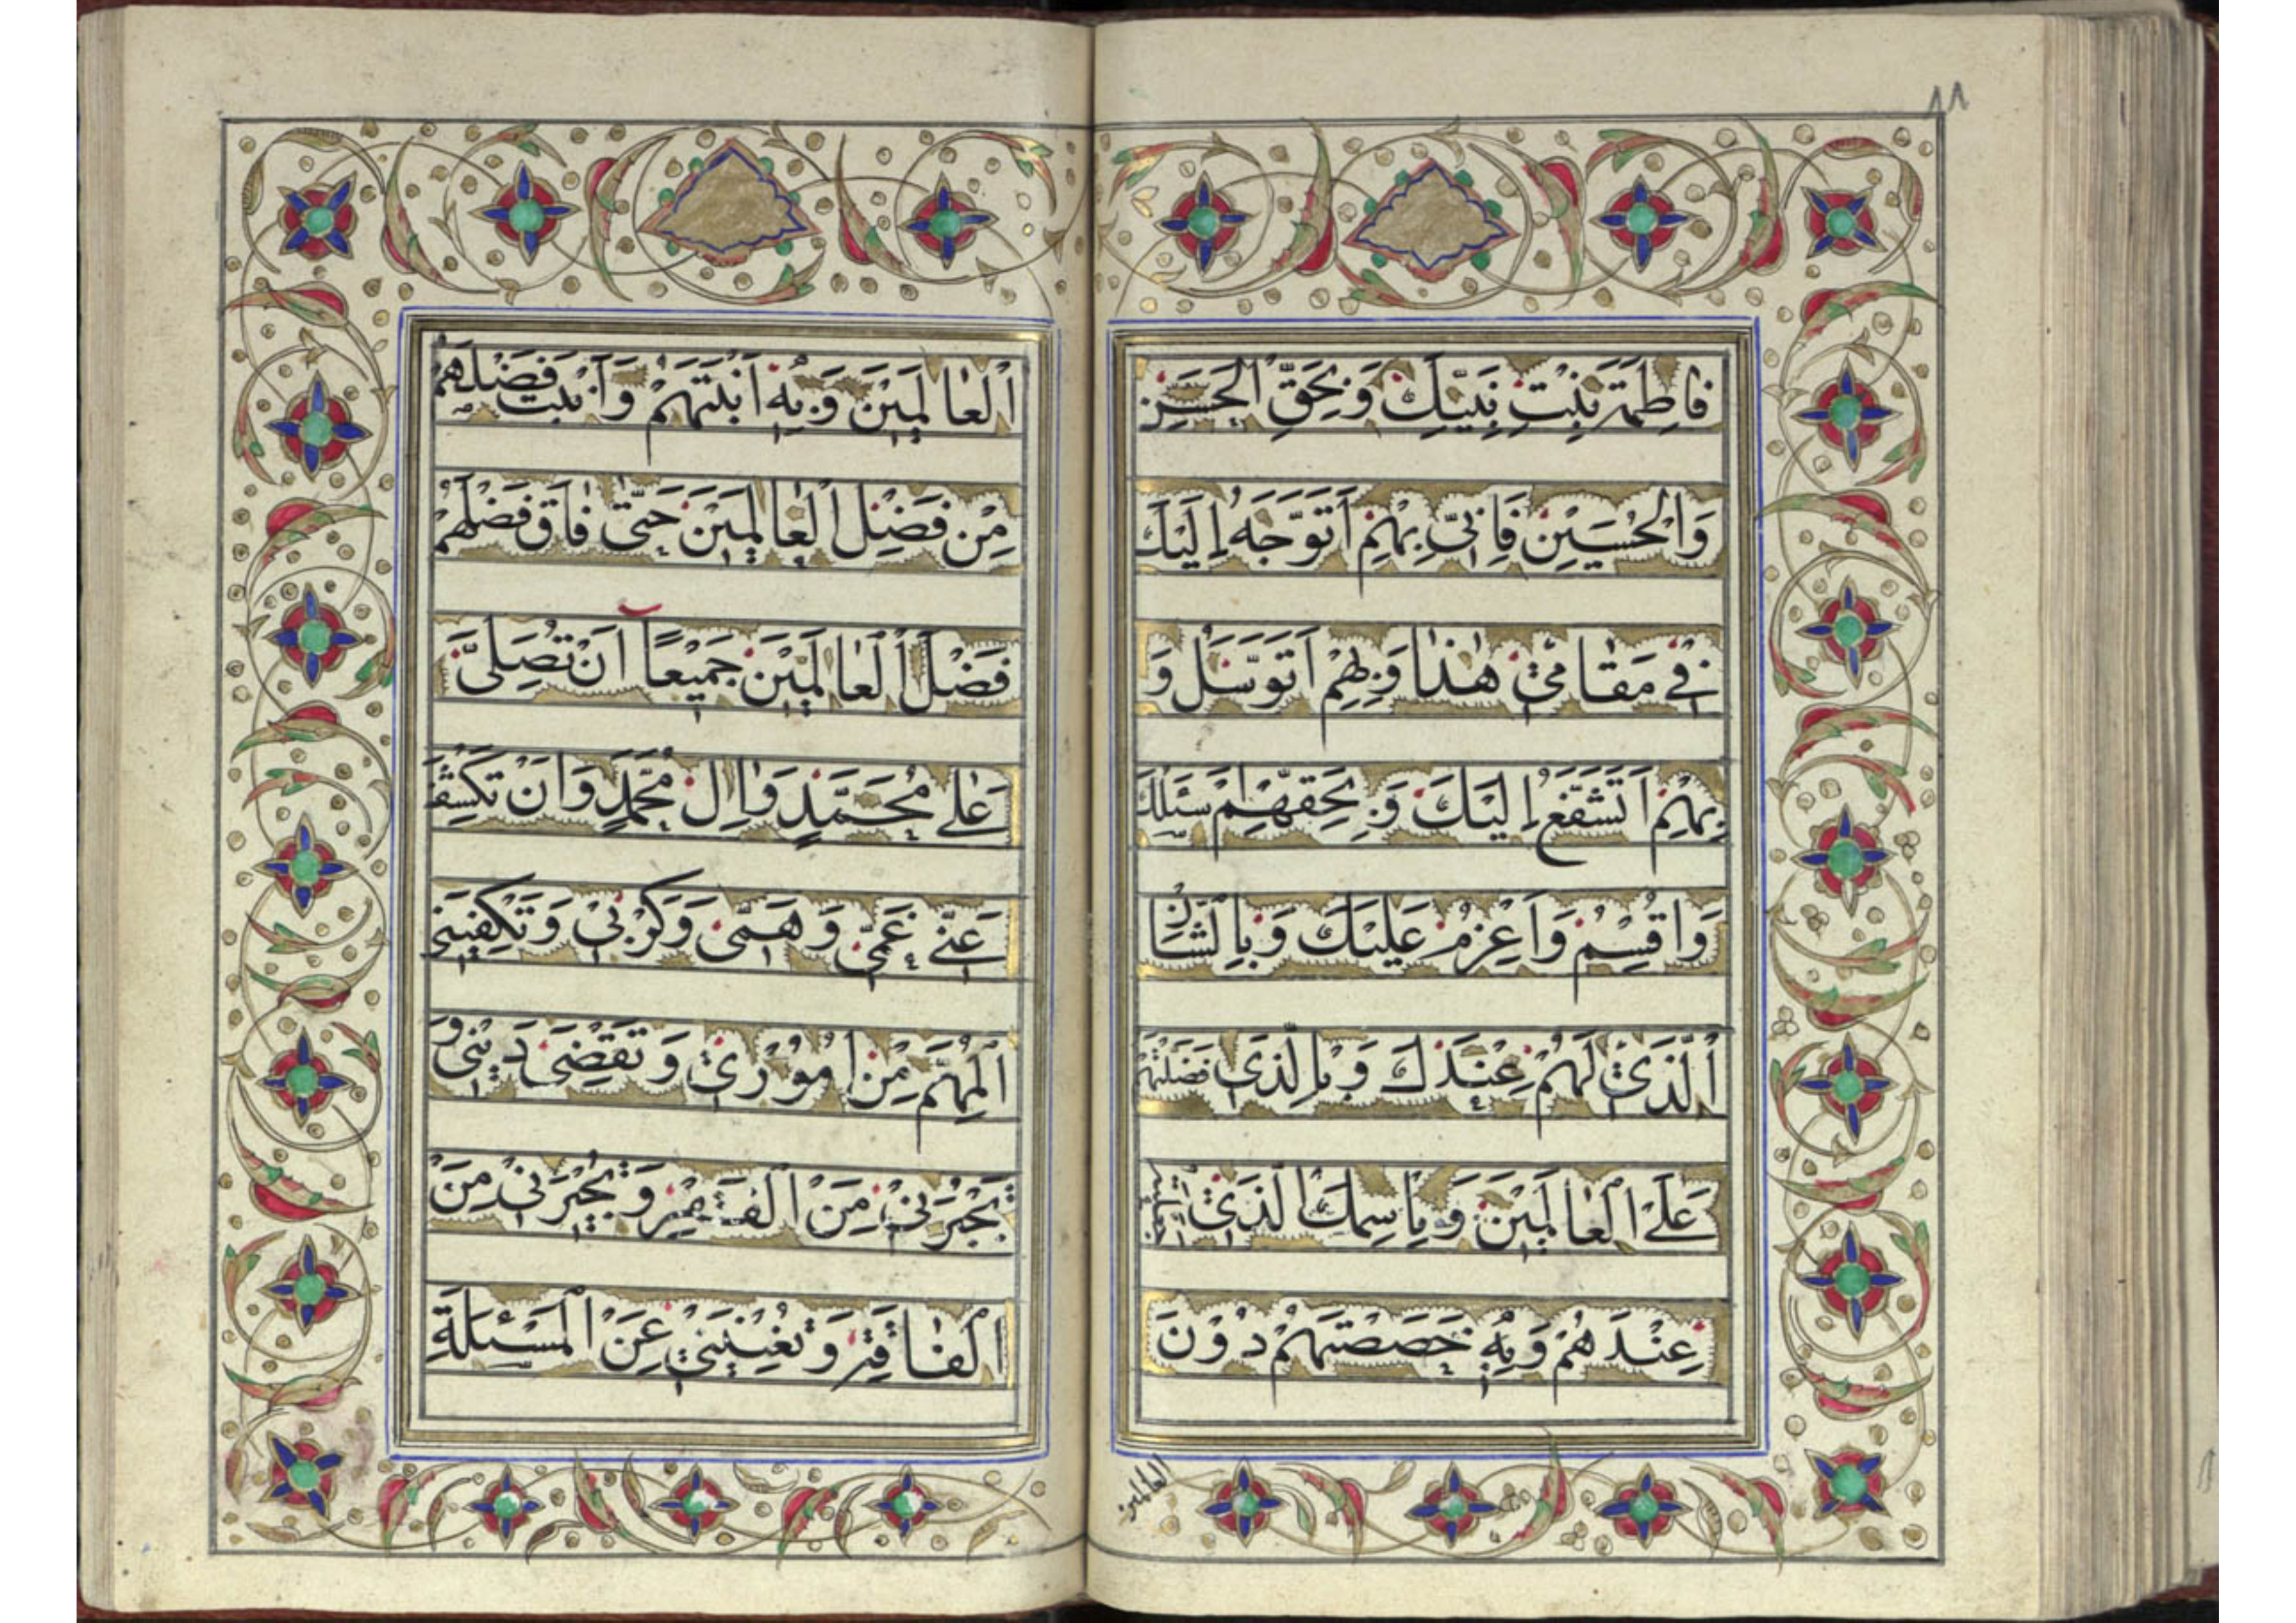 ١٨
فاطِمَةَ بِنْتِ نَبِيِّكَ وَبِحَقِّ الْحَسَنِ
وَالْحُسَيْنِ فَاِنّي بِهِمْ اَتَوَجَّهُ اِلَيْكَ
في مَقامي هٰذا وَبِهِمْ اَتَوَسَّلُ وَ
بِهِمْ اَتَشَفَّعُ اِلَيْكَ وَبِحَقِّهِمْ اَسْئَلُكَ
وَاُقْسِمُ وَاَعْزِمُ عَلَيْكَ وَبِالشَّاْنِ
الَّذي لَهُمْ عِنْدَكَ وَبِالَّذي فَضَّلْتَهُمْ
عَلَى الْعالَمينَ وَبِاسْمِكَ الَّذي
عِنْدَهُمْ وَبِهِ خَصَصْتَهُمْ دُوْنَ
العالمین
الْعالَمينَ وَبِهِ اَبَنْتَهُمْ وَاَبَنْتَ فَضْلَهُمْ
مِنْ فَضْلِ الْعالَمينَ حَتّى فاقَ فَضْلُهُمْ
فَضْلَ الْعالَمينَ جَميعًا اَنْ تُصَلِّيَ
عَلى مُحَمَّدٍ وَاٰلِ مُحَمَّدٍ وَاَنْ تَكْشِفَ
عَنّي غَمّي وَهَمّي وَكَرْبي وَتَكْفِيَني
الْمُهِمَّ مِنْ اُمُوْري وَتَقْضِيَ دَيْني وَ
تَجْبُرَني مِنَ الْفَقْرِ وَتُجيرَني مِنَ
الْفاقَةِ وَتُغْنِيَني عَنِ الْمَسْئَلَةِ